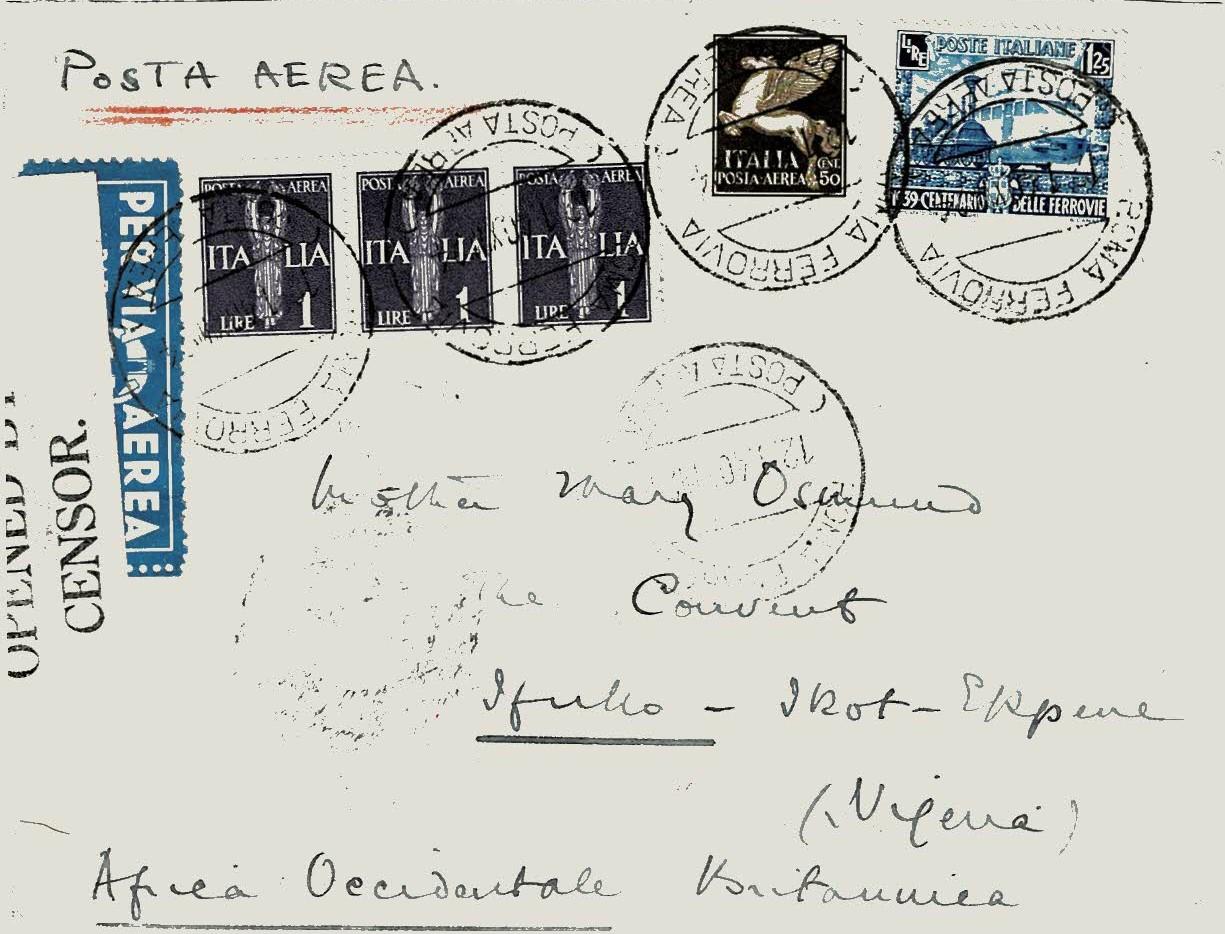 POSTA AEREA.
PER VIA AEREA
OPENED BY
CENSOR.
POSTA AEREA
ITALIA
LIRE 1
POSTA AEREA
ITALIA
LIRE 1
POSTA AEREA
ITALIA
LIRE 1
ITALIA
POSTA·AEREA
CENT.
50
LIRE
POSTE ITALIANE
1,25
CENTENARIO DELLE FERROVIE
FERROVIA
POSTA AEREA
FERROVIA
ROMA FERROVIA
POSTA AEREA
POSTA
Mother Mary Osmund
The Convent
Ifuho - Ikot-Ekpene
(Nigeria)
Africa Occidentale Britannica